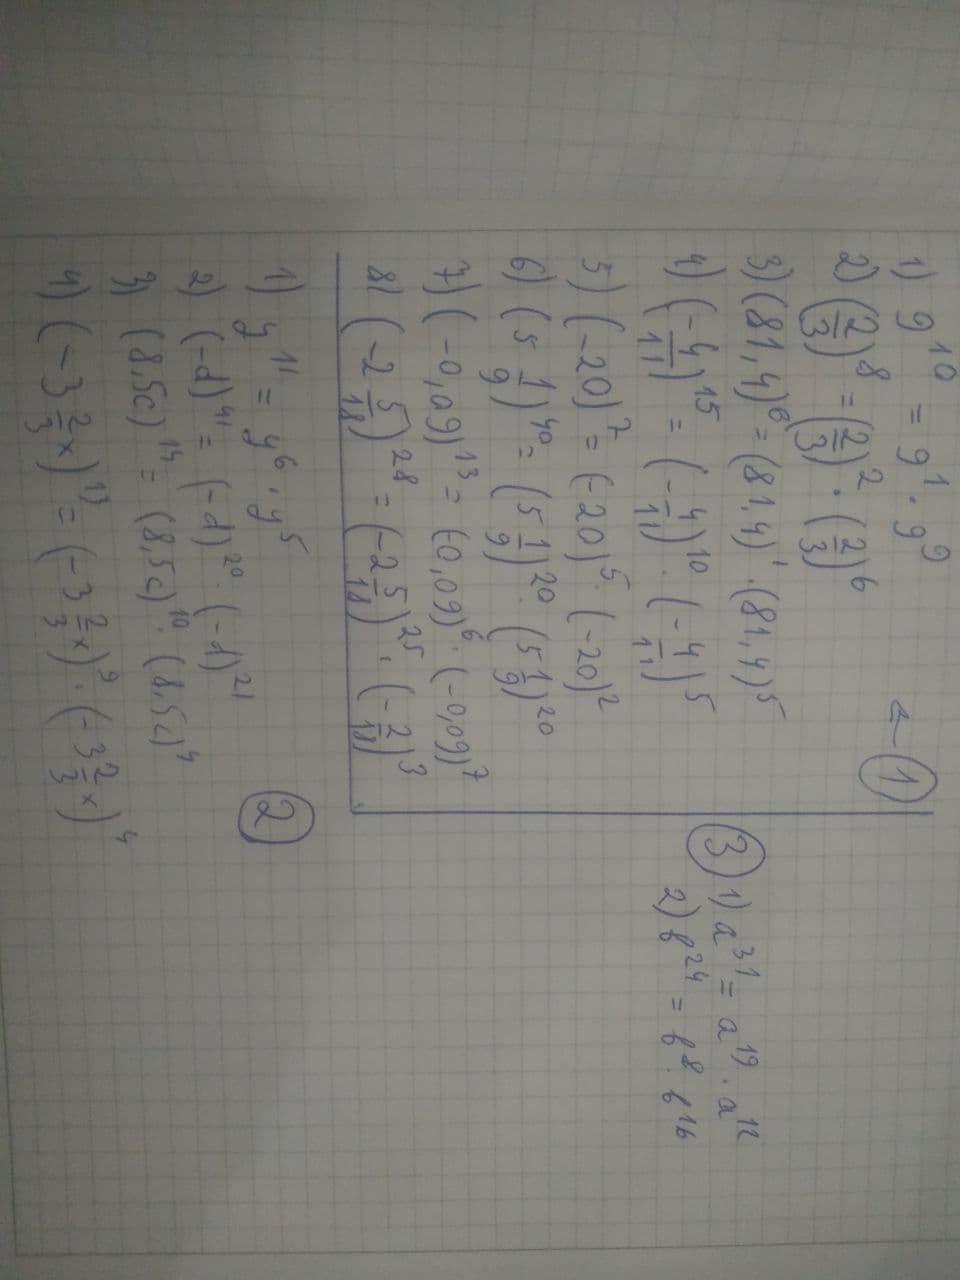 ①
1) 9^10 = 9^1 · 9^9
2) (2/3)^8 = (2/3)^2 · (2/3)^6
3) (81,4)^6 = (81,4)^1 · (81,4)^5
4) (-4/11)^15 = (-4/11)^10 · (-4/11)^5
5) (-20)^7 = (-20)^5 · (-20)^2
6) (5 1/9)^40 = (5 1/9)^20 · (5 1/9)^20
7) (-0,09)^13 = (-0,09)^6 · (-0,09)^7
8) (-2 5/18)^28 = (-2 5/18)^25 · (-2/18)^3
②
1) y^11 = y^6 · y^5
2) (-d)^41 = (-d)^20 · (-d)^21
3) (8,5c)^14 = (8,5c)^10 · (8,5c)^4
4) (-3 2/3 x)^13 = (-3 2/3 x)^9 · (-3 2/3 x)^4
③
1) a^31 = a^19 · a^12
2) b^24 = b^8 · b^16